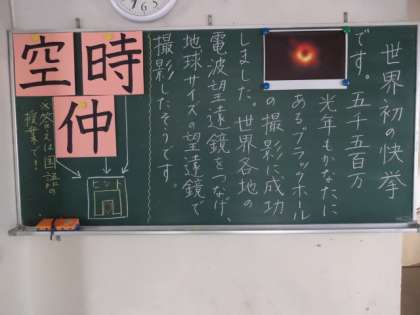 世界初の快挙
です。五千五百万
光年もかなたに
あるブラックホール
の撮影に成功
しました。世界各地の
電波望遠鏡をつなげ、
地球サイズの望遠鏡で
撮影したそうです。
時
空
仲
ヒント
※答えは国語の
授業で!